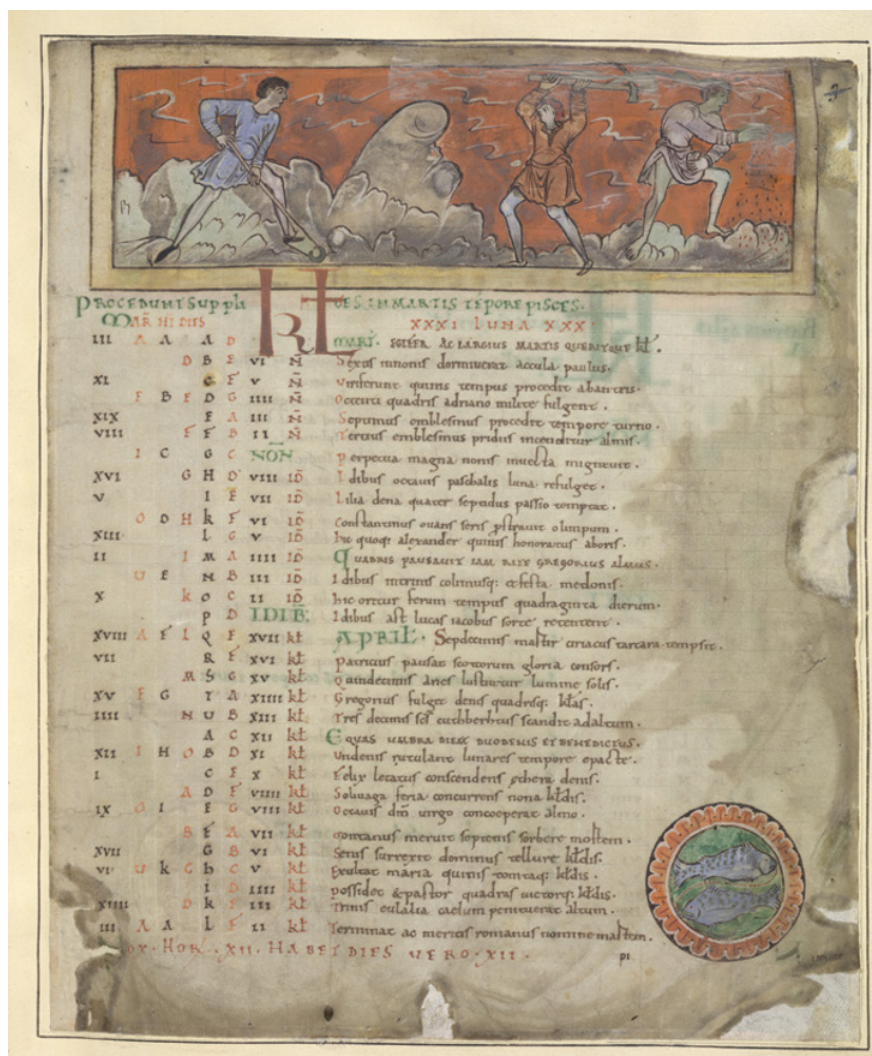 PROCEDUNT SUPPLI KL ES IN MARTIS TEPORE PISCES.
MAR HI DIES XXXI LUNA XXX
III A A A D MART.
D B E VI N Sextus innonis dormiverat accula paulus.
XI C F V N quinis tempus procedit
F B E D G IIII N Occurit quadris adriano milite fulgent.
XIX F A III N Septimus emblesmus procedit tempore turno.
VIII F F B II N Tertius emblesmus pridus incenditur almis.
I C G C NON Perpetua magna nonis invecta
XVI G H D VIII ID Idibus octavis paschalis luna refulget.
V I E VII ID Lilia dena quater septidus passio temptat.
O D H K F VI ID Constantinus ovans seris pstravit olimpum.
XIII L G V ID hic quoq; alexander quinis honoratus
II I M A IIII ID QUADRIS PAUSAVIT IAM RITE GREGORIUS ALMUS.
U E N B III ID Idibus
X K O C II ID hic oritur ferum tempus quadraginta dierum.
P D IDIB Idibus ast lucas iacobus sorte
XVIII A F L Q E XVII kl APRIL. Sepdecimis ciriacus tartara tempsit.
VII R F XVI kl Patricius pausat scottorum gloria consors.
M S G XV kl Quindecimis aries lumine solis.
XV F G T A XIIII kl Gregorius fulget denis quadrisq; klas.
IIII N U B XIII kl Tres decimis scs cuthberhtus scandit adaltum.
A C XII kl EQUAS UMBRA DIEM DUODENIS ET BENEDICTUS.
XII I H O B D XI kl Undenis rutilant lunares tempore epacte.
I C E X kl Felix letatus conscendens denis.
A D F VIIII kl Solivaga feria concurrens nona kldis.
IX O I E G VIII kl Octavis dm virgo almo.
B F A VII kl Montanus meruit septenis sorbere mortem.
XVII G B VI kl Senis surrexit dominus tellure kldis.
VI U K G h C V kl Exultat maria quinis kldis.
i D IIII kl Possidet & pastor quadras victorq; kldis.
XIIII D k E III kl Trinis eulalia caelum altum.
III A A L F II kl Terminat ac meritis romanus nomine martem.
NOX. HOR. XII. HABET DIES VERO. XII. PI